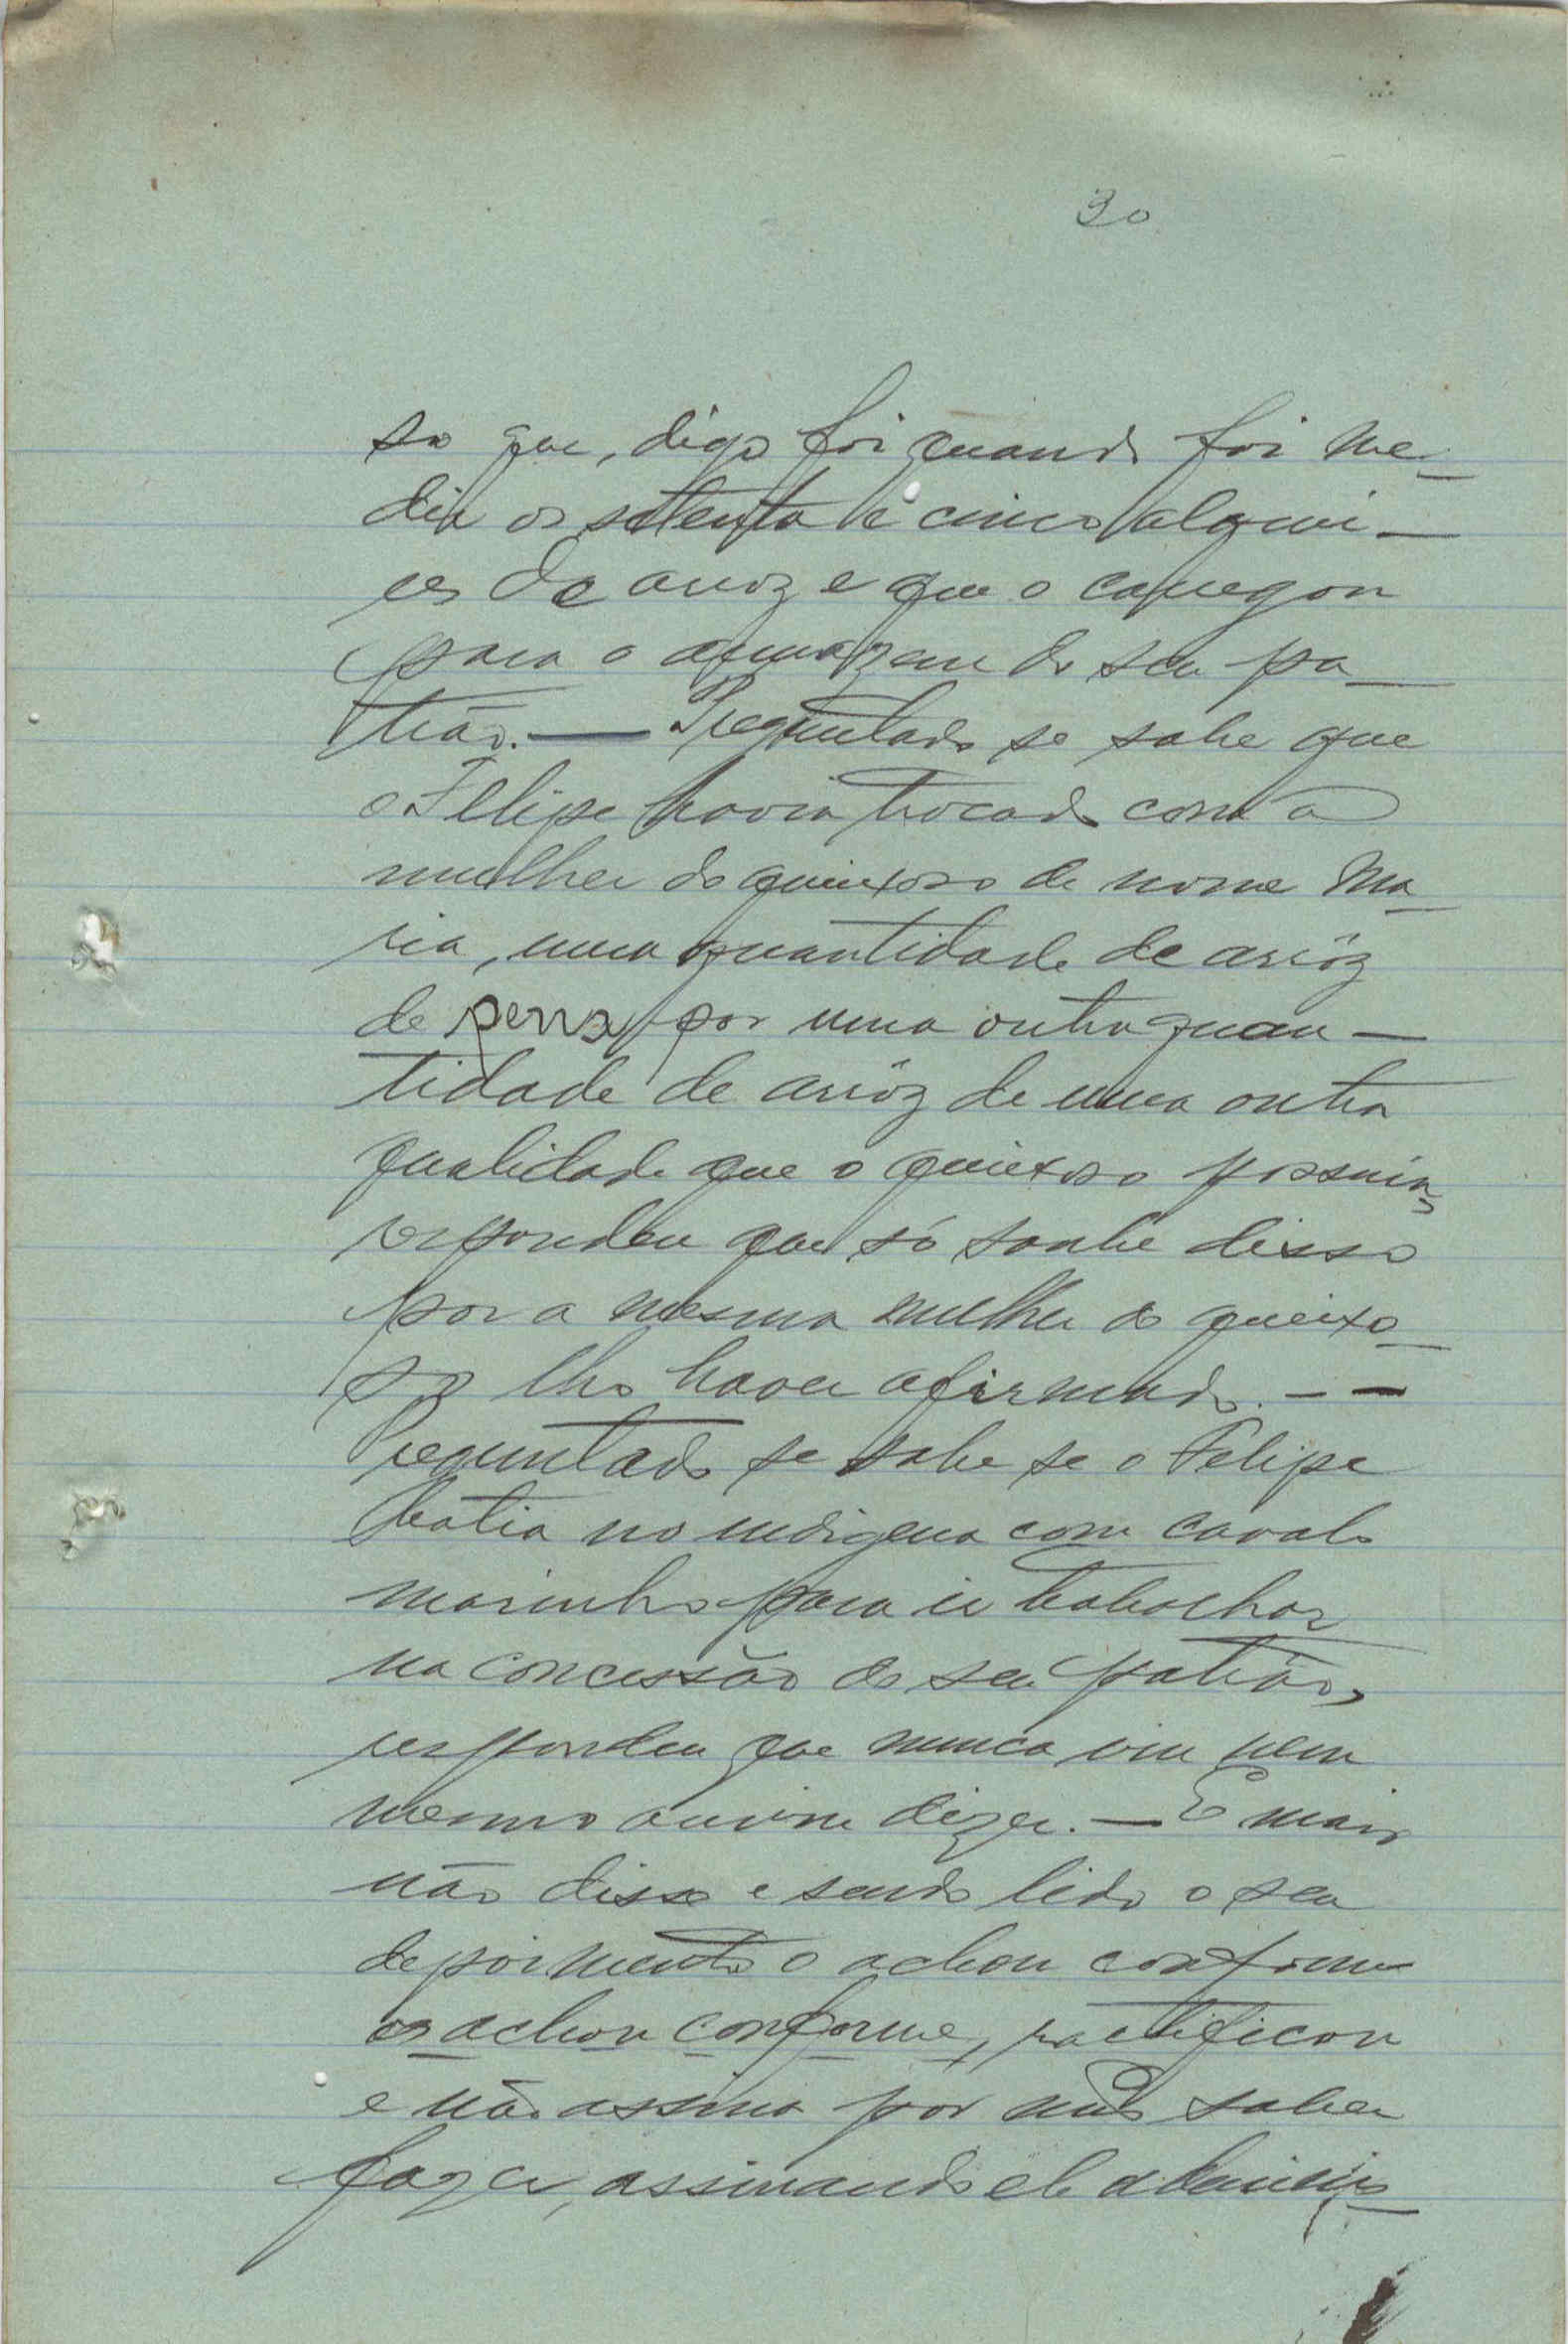 30
so que, digo foi quando foi me-
dir os setenta e cinco alquei-
res de arroz e que o carregou
para o armazem do seu pa-
trão. — Preguntado se sabe que
o Felipe havia trocado com a
mulher do queixoso de nome Ma-
ria, uma quantidade de arrôz
de por uma outra quan-
tidade de arrôz de uma outra
qualidade que o queixoso possuia,
respondeu que só soube disso
por a mesma mulher do queixo-
so lho haver afirmado. - -
Preguntado se sabe se o Felipe
batia no indigena com cavalo
marinho para ir trabalhar
na concessão do seu patrão,
respondeu que nunca viu nem
mesmo ouviu dizer. — E mais
não disse e sendo lido o seu
depoimento o achou conforme
o achou conforme, ractificou
e não assina por não saber
fazer, assinando ele adminis-